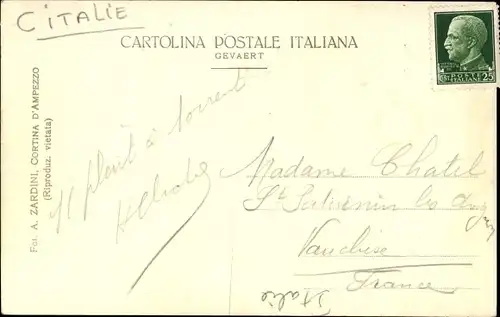 C ITALIE
CARTOLINA POSTALE ITALIANA
GEVAERT
POSTE
ITALIANE
CENT 25
Fot. A. ZARDINI, CORTINA D'AMPEZZO
(Riproduz. vietata)
Il pleut à torrent
Madame Chatel
St Saturnin les
Vaucluse
France
Italie